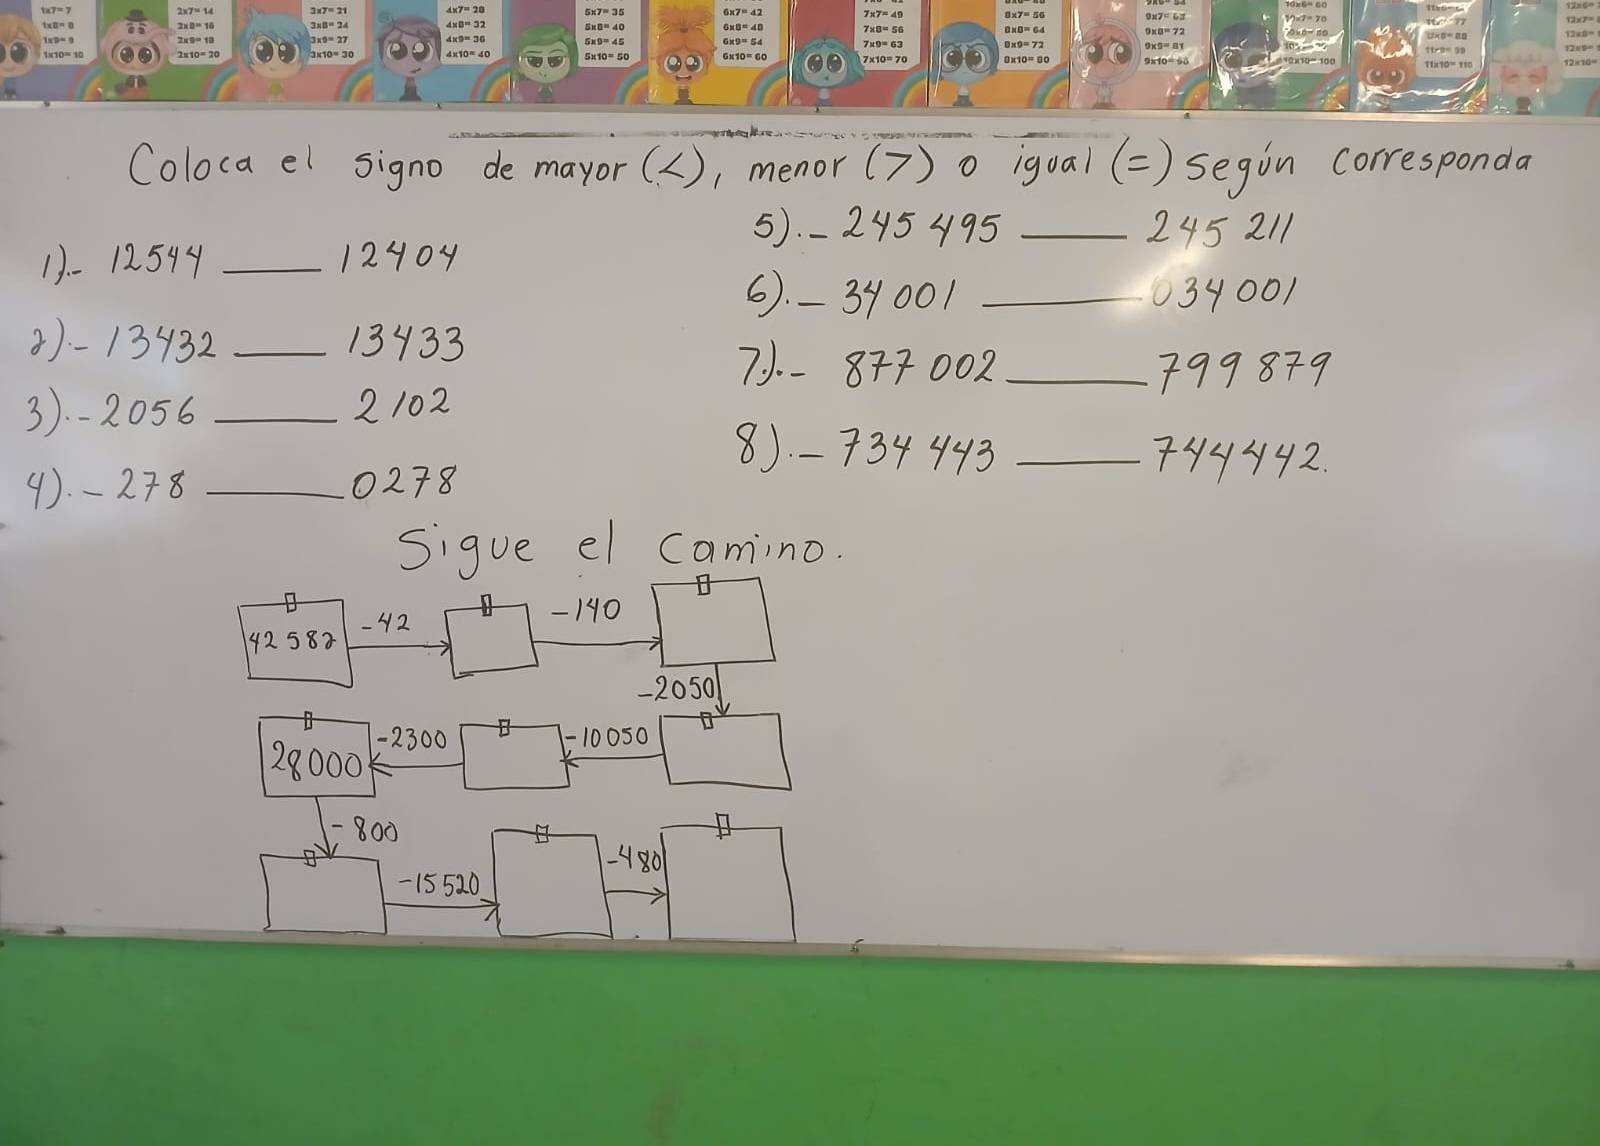 1x7=7
1x8=8
1x9=9
1x10=10
2x7=14
2x8=16
2x9=18
2x10=20
3x7=21
3x8=24
3x9=27
3x10=30
4x7=28
4x8=32
4x9=36
4x10=40
5x7=35
5x8=40
5x9=45
5x10=50
6x7=42
6x8=48
6x9=54
6x10=60
7x7=49
7x8=56
7x9=63
7x10=70
8x7=56
8x8=64
8x9=72
8x10=80
9x7=63
9x8=72
9x9=81
9x10=90
10x6=60
10x10=100
11x8=88
11x9=99
11x10=110
Coloca el signo de mayor (<), menor (>) o igual (=) según corresponda
1).- 12544 ____ 12404
2).- 13432 ____ 13433
3).- 2056 ____ 2102
4).- 278 ____ 0278
5).- 245 495 ____ 245 211
6).- 34 001 ____ 034 001
7).- 877 002 ____ 799 879
8).- 734 443 ____ 744442.
Sigue el camino.
42 582 -42 -140
-2050
28000 -2300 -10050
-800
-15520 -480